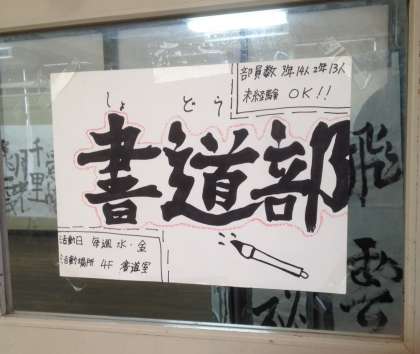 部員数 3年14人 2年13人
未経験 OK!!
しょ どう
書道部
活動日 毎週 水・金
活動場所 4F 書道室
千里
飛